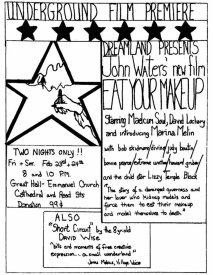 UNDERGROUND FILM PREMIERE
DREAMLAND PRESENTS
John Water's new film
EAT YOUR MAKEUP
Starring Maelcum Soul, David Lochary
and introducing Marina Melin
with bob skidmore/divine/judy boutin/
bonnie pearce/extreme unction/howard gruber/
and the child star Lizzy Temple Black
"The story of a deranged governess and
her lover who kidnap models and
force them to eat their makeup
and model themselves to death."
TWO NIGHTS ONLY!!
Fri + Sat. Feb 23rd + 24th
8 and 10 P.M.
Great Hall - Emmanuel Church
Cathedral and Read Sts
Donation 99¢
ALSO
"Short Circuit" by the 8 yr old
David Wise.
"Bits and moments of fine creative
expression... a small wonderment"
Jonas Mekas, Village Voice